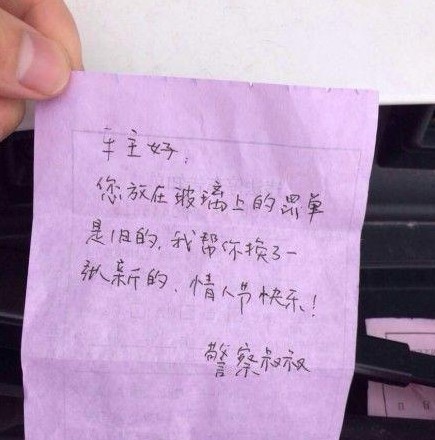 车主好:
您放在玻璃上的罚单
是旧的,我帮你换了一
张新的、情人节快乐!
警察叔叔